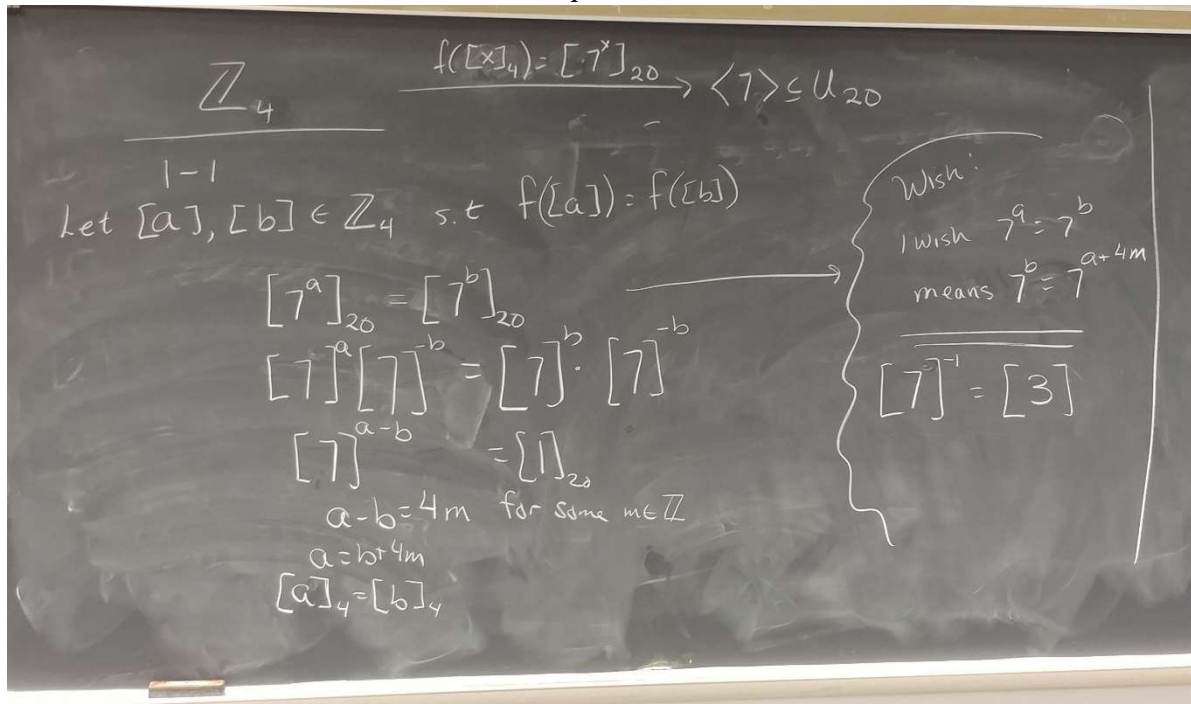 ℤ₄ f([x]₄) = [7ˣ]₂₀ → ⟨7⟩ ⊆ U₂₀
1-1
Let [a], [b] ∈ ℤ₄ s.t f([a]) = f([b])
[7ᵃ]₂₀ = [7ᵇ]₂₀ →
[7]ᵃ[7]⁻ᵇ = [7]ᵇ · [7]⁻ᵇ
[7]ᵃ⁻ᵇ = [1]₂₀
a-b = 4m for some m∈ℤ
a = b+4m
[a]₄ = [b]₄
Wish:
I wish 7ᵃ = 7ᵇ
means 7ᵇ = 7ᵃ⁺⁴ᵐ
[7]⁻¹ = [3]